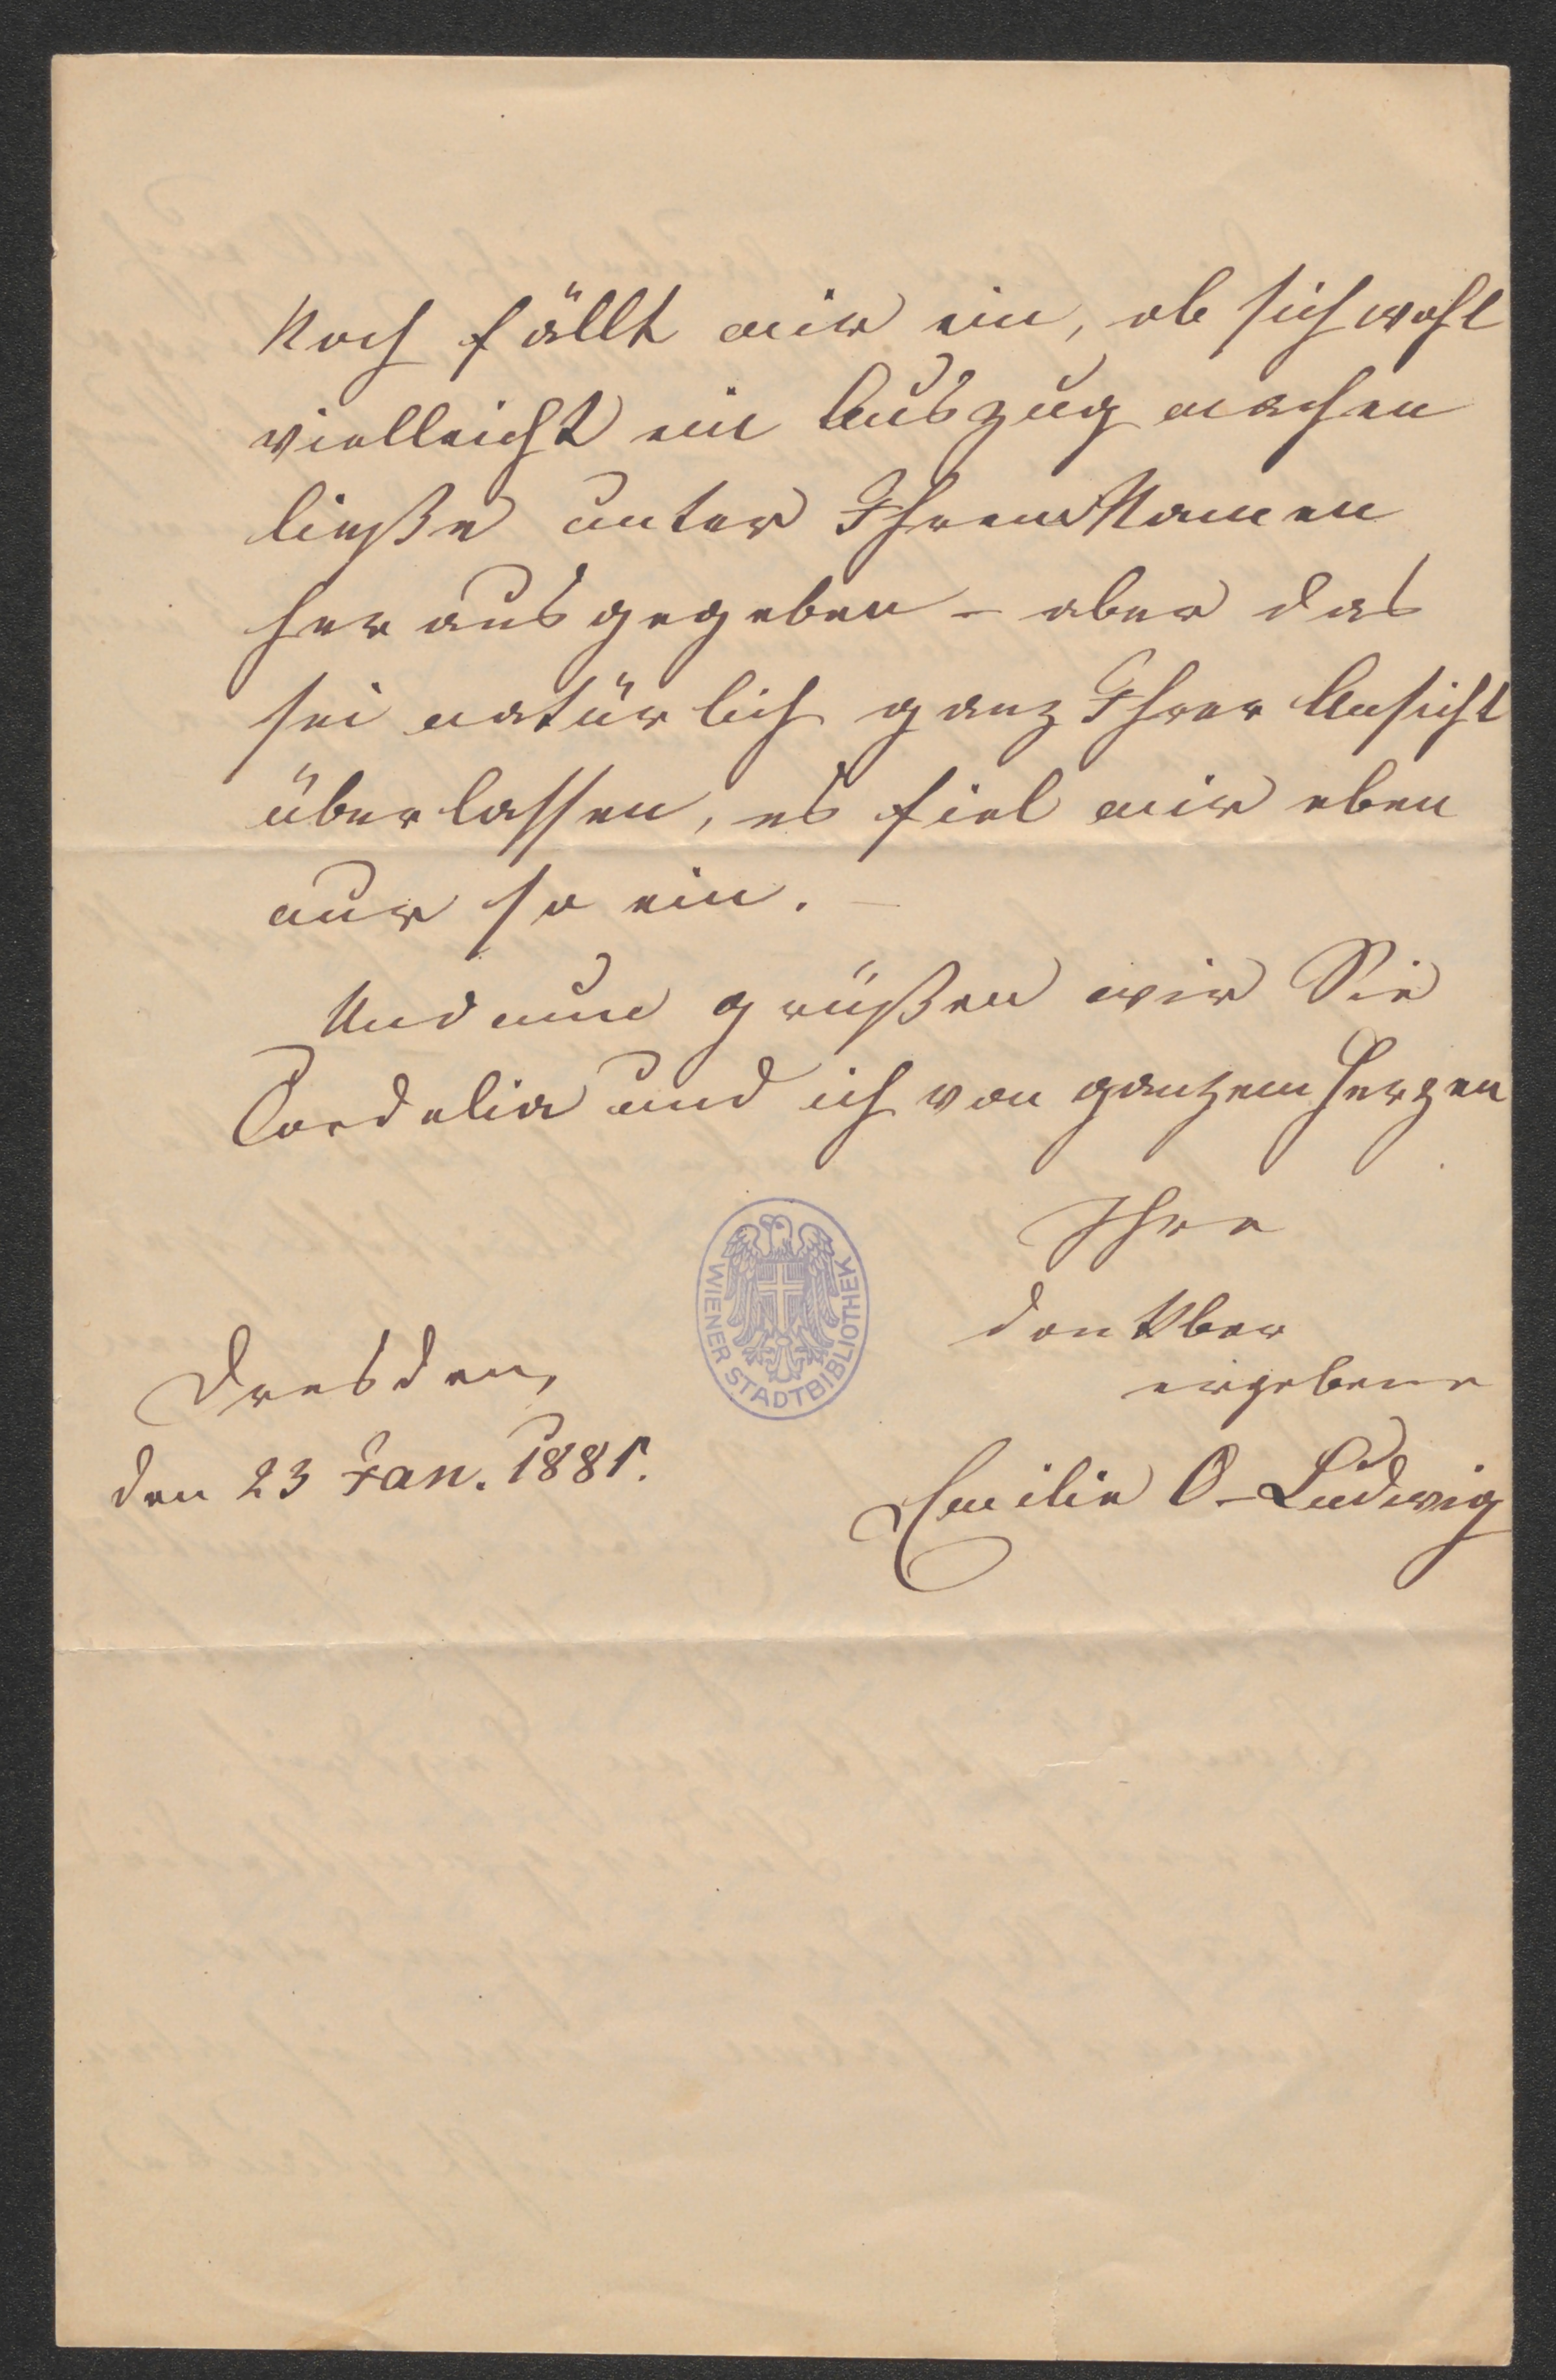 Noch fällt mir ein, ob sich wohl
vielleicht ein Auszug machen
ließe unter Ihrem Namen
herausgegeben – aber das
sei natürlich ganz Ihrer Ansicht
überlassen, es fiel mir eben
nur so ein. –
Und nun grüßen wir Sie
Cordelia und ich von ganzem Herzen
Ihre
dankbar
ergebene
Dresden,
den 23 Jan. 1881.
Emilie O-Ludwig
WIENER STADTBIBLIOTHEK